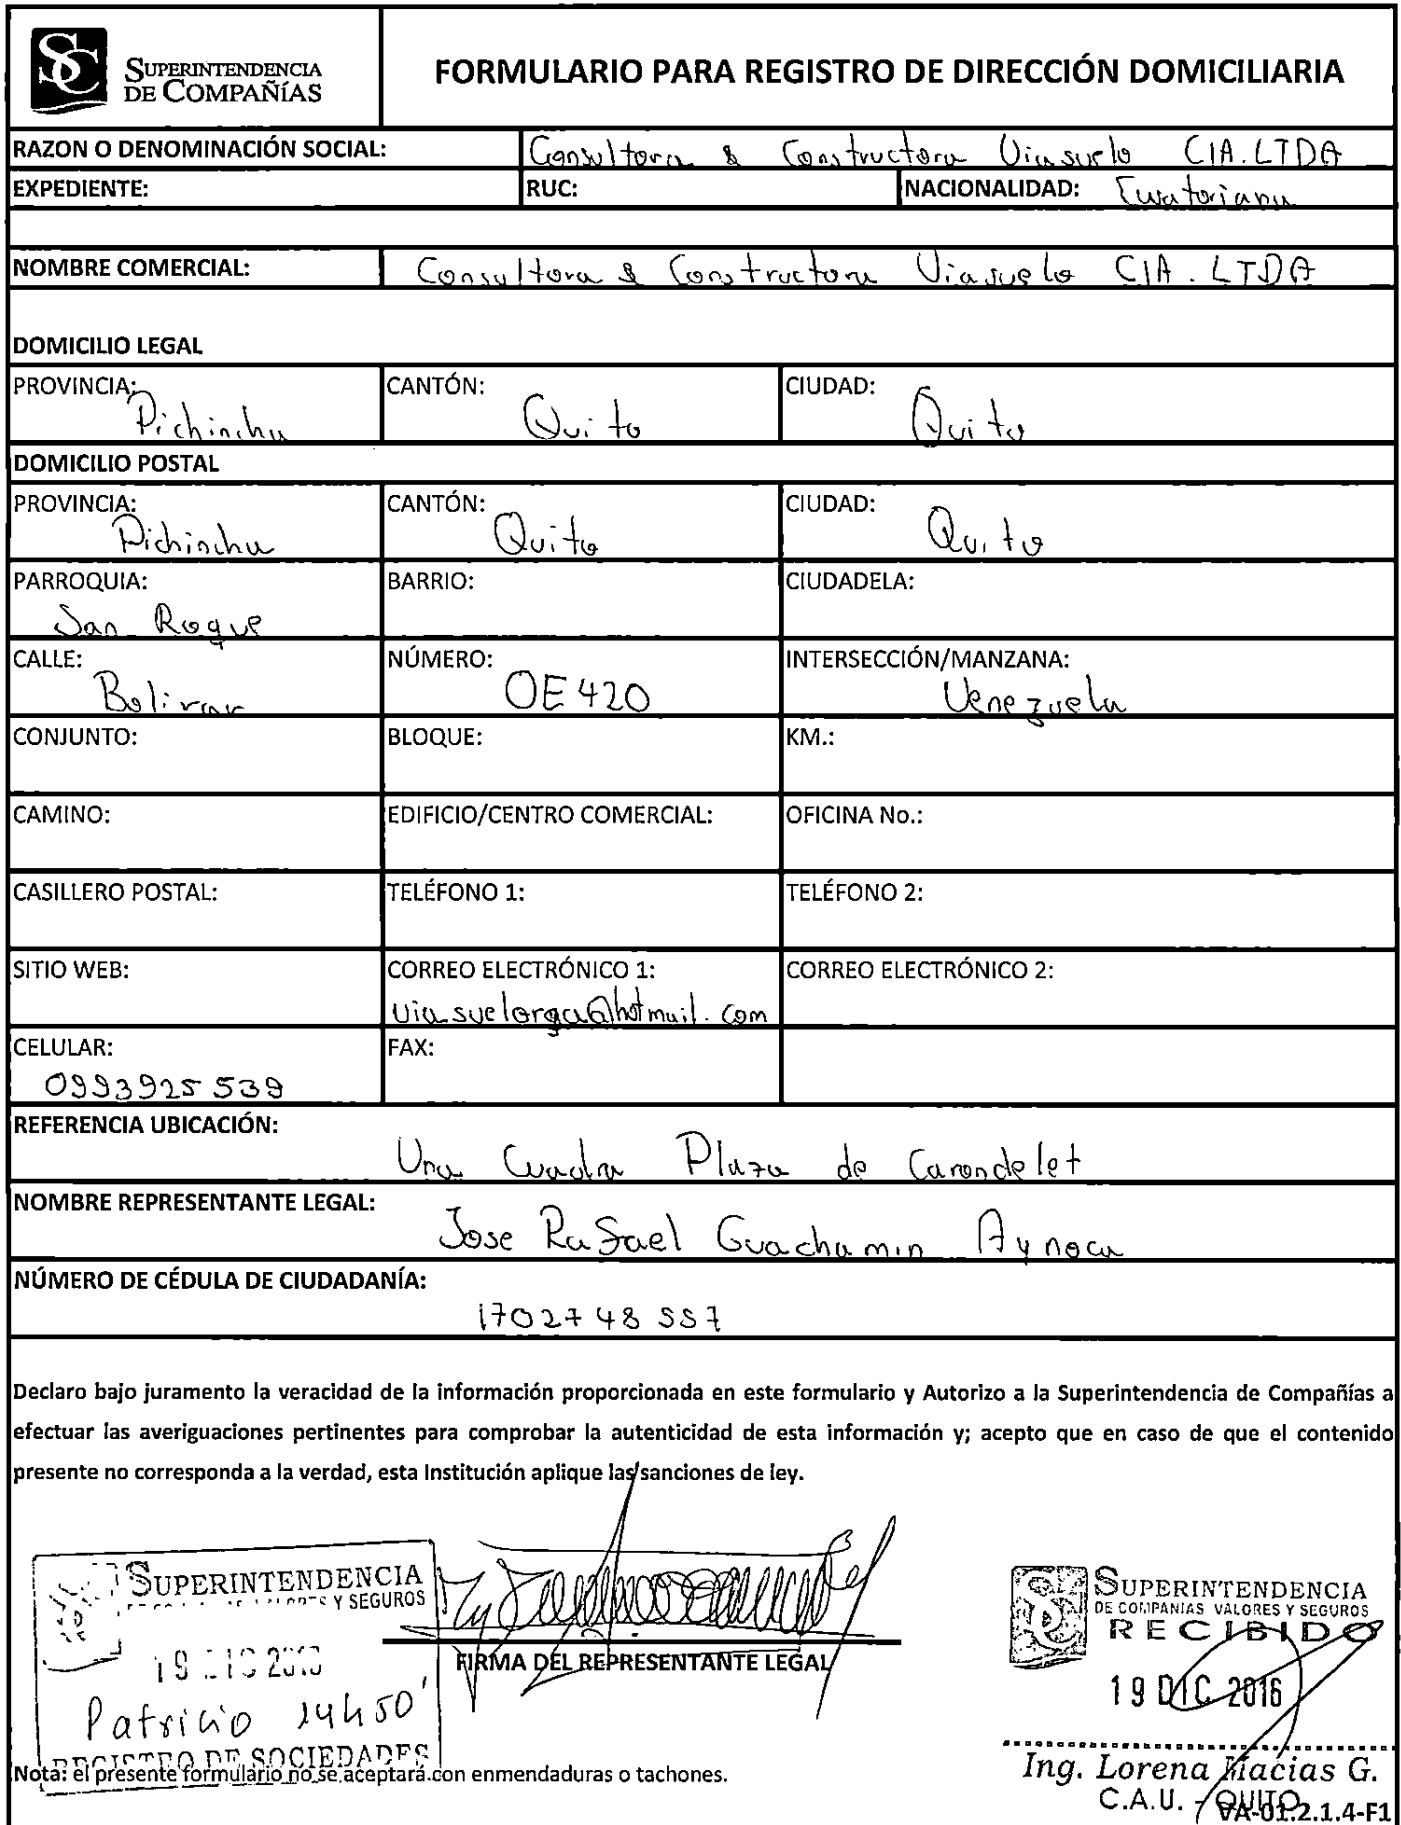 SC SUPERINTENDENCIA
DE COMPAÑÍAS
FORMULARIO PARA REGISTRO DE DIRECCIÓN DOMICILIARIA
RAZON O DENOMINACIÓN SOCIAL: Consultora & Constructora Viasuelo CIA.LTDA
EXPEDIENTE: RUC: NACIONALIDAD: Ecuatoriana
NOMBRE COMERCIAL: Consultora & Constructora Viasuelo CIA. LTDA
DOMICILIO LEGAL
PROVINCIA: Pichincha CANTÓN: Quito CIUDAD: Quito
DOMICILIO POSTAL
PROVINCIA: Pichincha CANTÓN: Quito CIUDAD: Quito
PARROQUIA: San Roque BARRIO: CIUDADELA:
CALLE: Bolivar NÚMERO: OE420 INTERSECCIÓN/MANZANA: Venezuela
CONJUNTO: BLOQUE: KM.:
CAMINO: EDIFICIO/CENTRO COMERCIAL: OFICINA No.:
CASILLERO POSTAL: TELÉFONO 1: TELÉFONO 2:
SITIO WEB: CORREO ELECTRÓNICO 1: CORREO ELECTRÓNICO 2:
viasuelorga@hotmail.com
CELULAR: FAX:
0993925539
REFERENCIA UBICACIÓN:
Una Cuadra Plaza de Carondelet
NOMBRE REPRESENTANTE LEGAL:
Jose Rafael Guachamin Aynoca
NÚMERO DE CÉDULA DE CIUDADANÍA:
1702748557
Declaro bajo juramento la veracidad de la información proporcionada en este formulario y Autorizo a la Superintendencia de Compañías a
efectuar las averiguaciones pertinentes para comprobar la autenticidad de esta información y; acepto que en caso de que el contenido
presente no corresponda a la verdad, esta Institución aplique las sanciones de ley.
SUPERINTENDENCIA
Y SEGUROS
Patricio 14h50'
REGISTRO DE SOCIEDADES
FIRMA DEL REPRESENTANTE LEGAL
SUPERINTENDENCIA
DE COMPAÑIAS VALORES Y SEGUROS
RECIBIDO
19 DIC 2016
Ing. Lorena Macias G.
C.A.U. - QUITO
Nota: el presente formulario no se aceptará con enmendaduras o tachones.
VA-01.2.1.4-F1